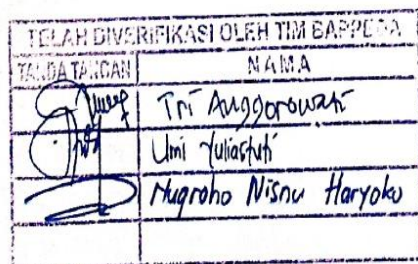 TELAH DIVERIFIKASI OLEH TIM BAPPEDA
TANDA TANGAN NAMA
Tri Anggorowati
Umi Yuliastuti
Nugroho Nisnu Haryoko